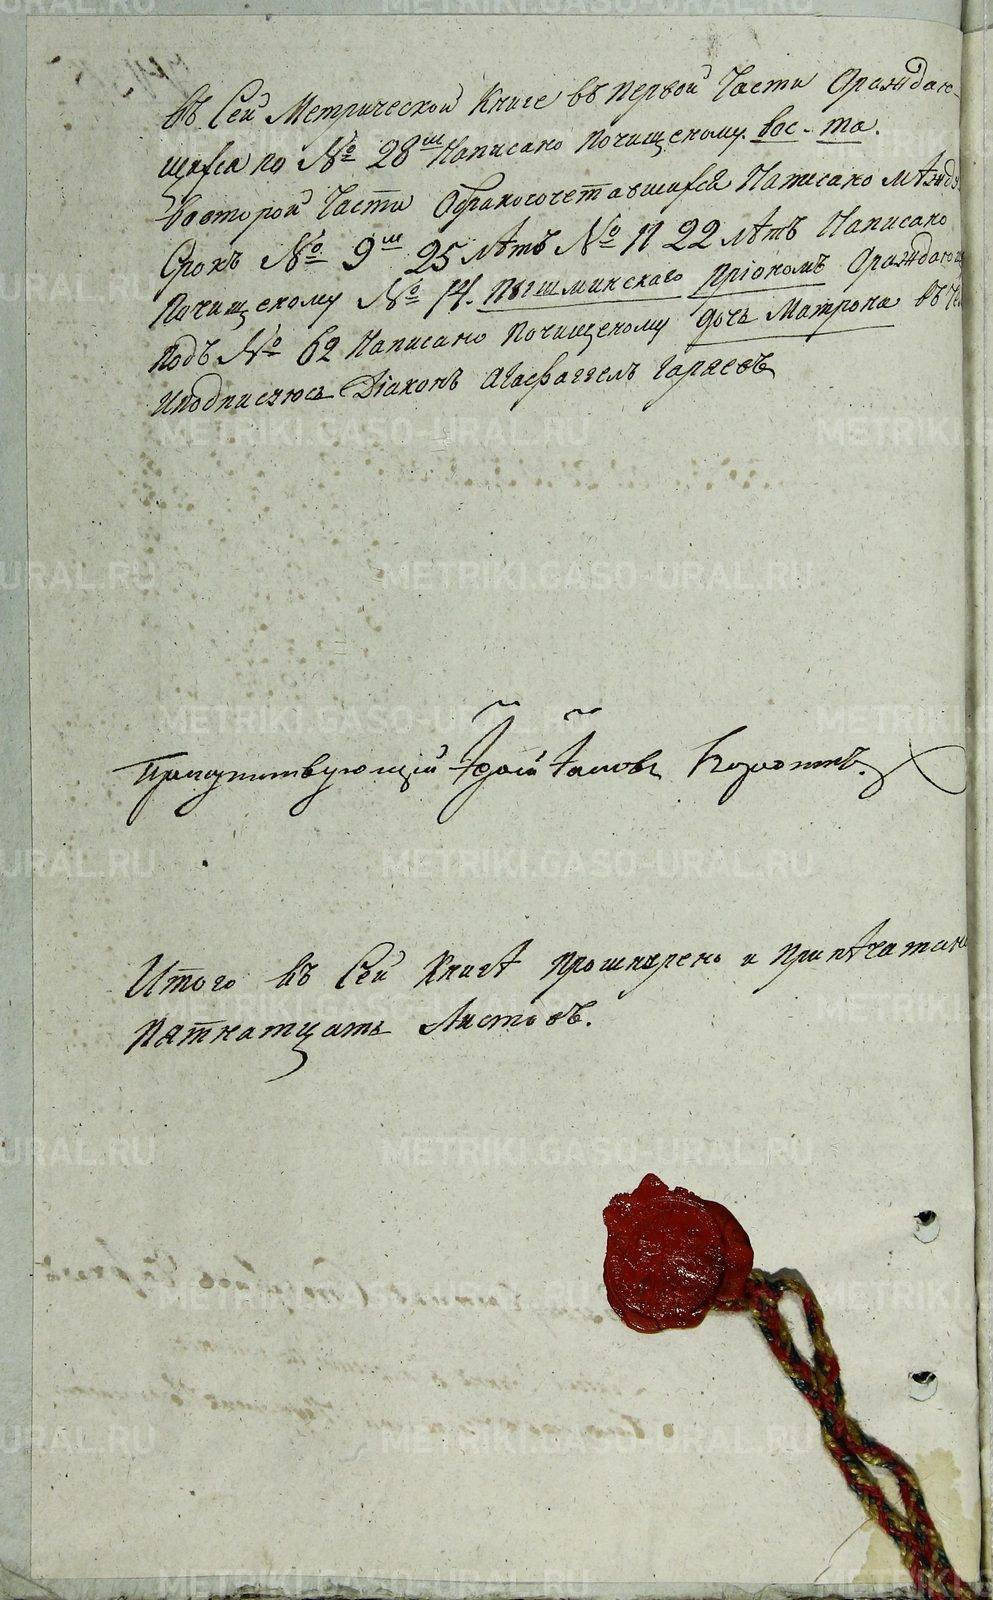 въ Сей Метрической Книге въ первой Части Ораждаю-
щихся по № 28ш Написано Почищеному вос-та.
Во второй Части Обракосочетавшихся Написано мѣжду
Срокъ № 9ш 25 лѣтъ № 11 22 лѣтъ Написано
Почищеному № 14. Пышминскаго Пріономъ Ораждающ
подъ № 62 Написано Почищеному дочь Матрона въ
Иподписуюсь Діаконъ Гаряевъ
Присутствующій Іерей Іаковъ
Итого въ Сей Книгѣ прошнурено и припѣчатано
Пятнатцать Листовъ.
METRIKI.GASO-URAL.RU